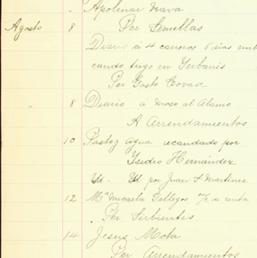 Apolinar Nava
Agosto 8 Por Semillas
Diario á 4 carros 6 dias
cando trigo en Yerbanis
Por Gasto
8 Diario a mozo al Alamo
A Arrendamientos
10 Pastos agua recaudado por
Isidro Hernández
Yd. Yd. por Juan F Martinez
12 Mª Micaela Gallegos
Por Sirbientes
14 Jesus Mota
Por Arrendamientos